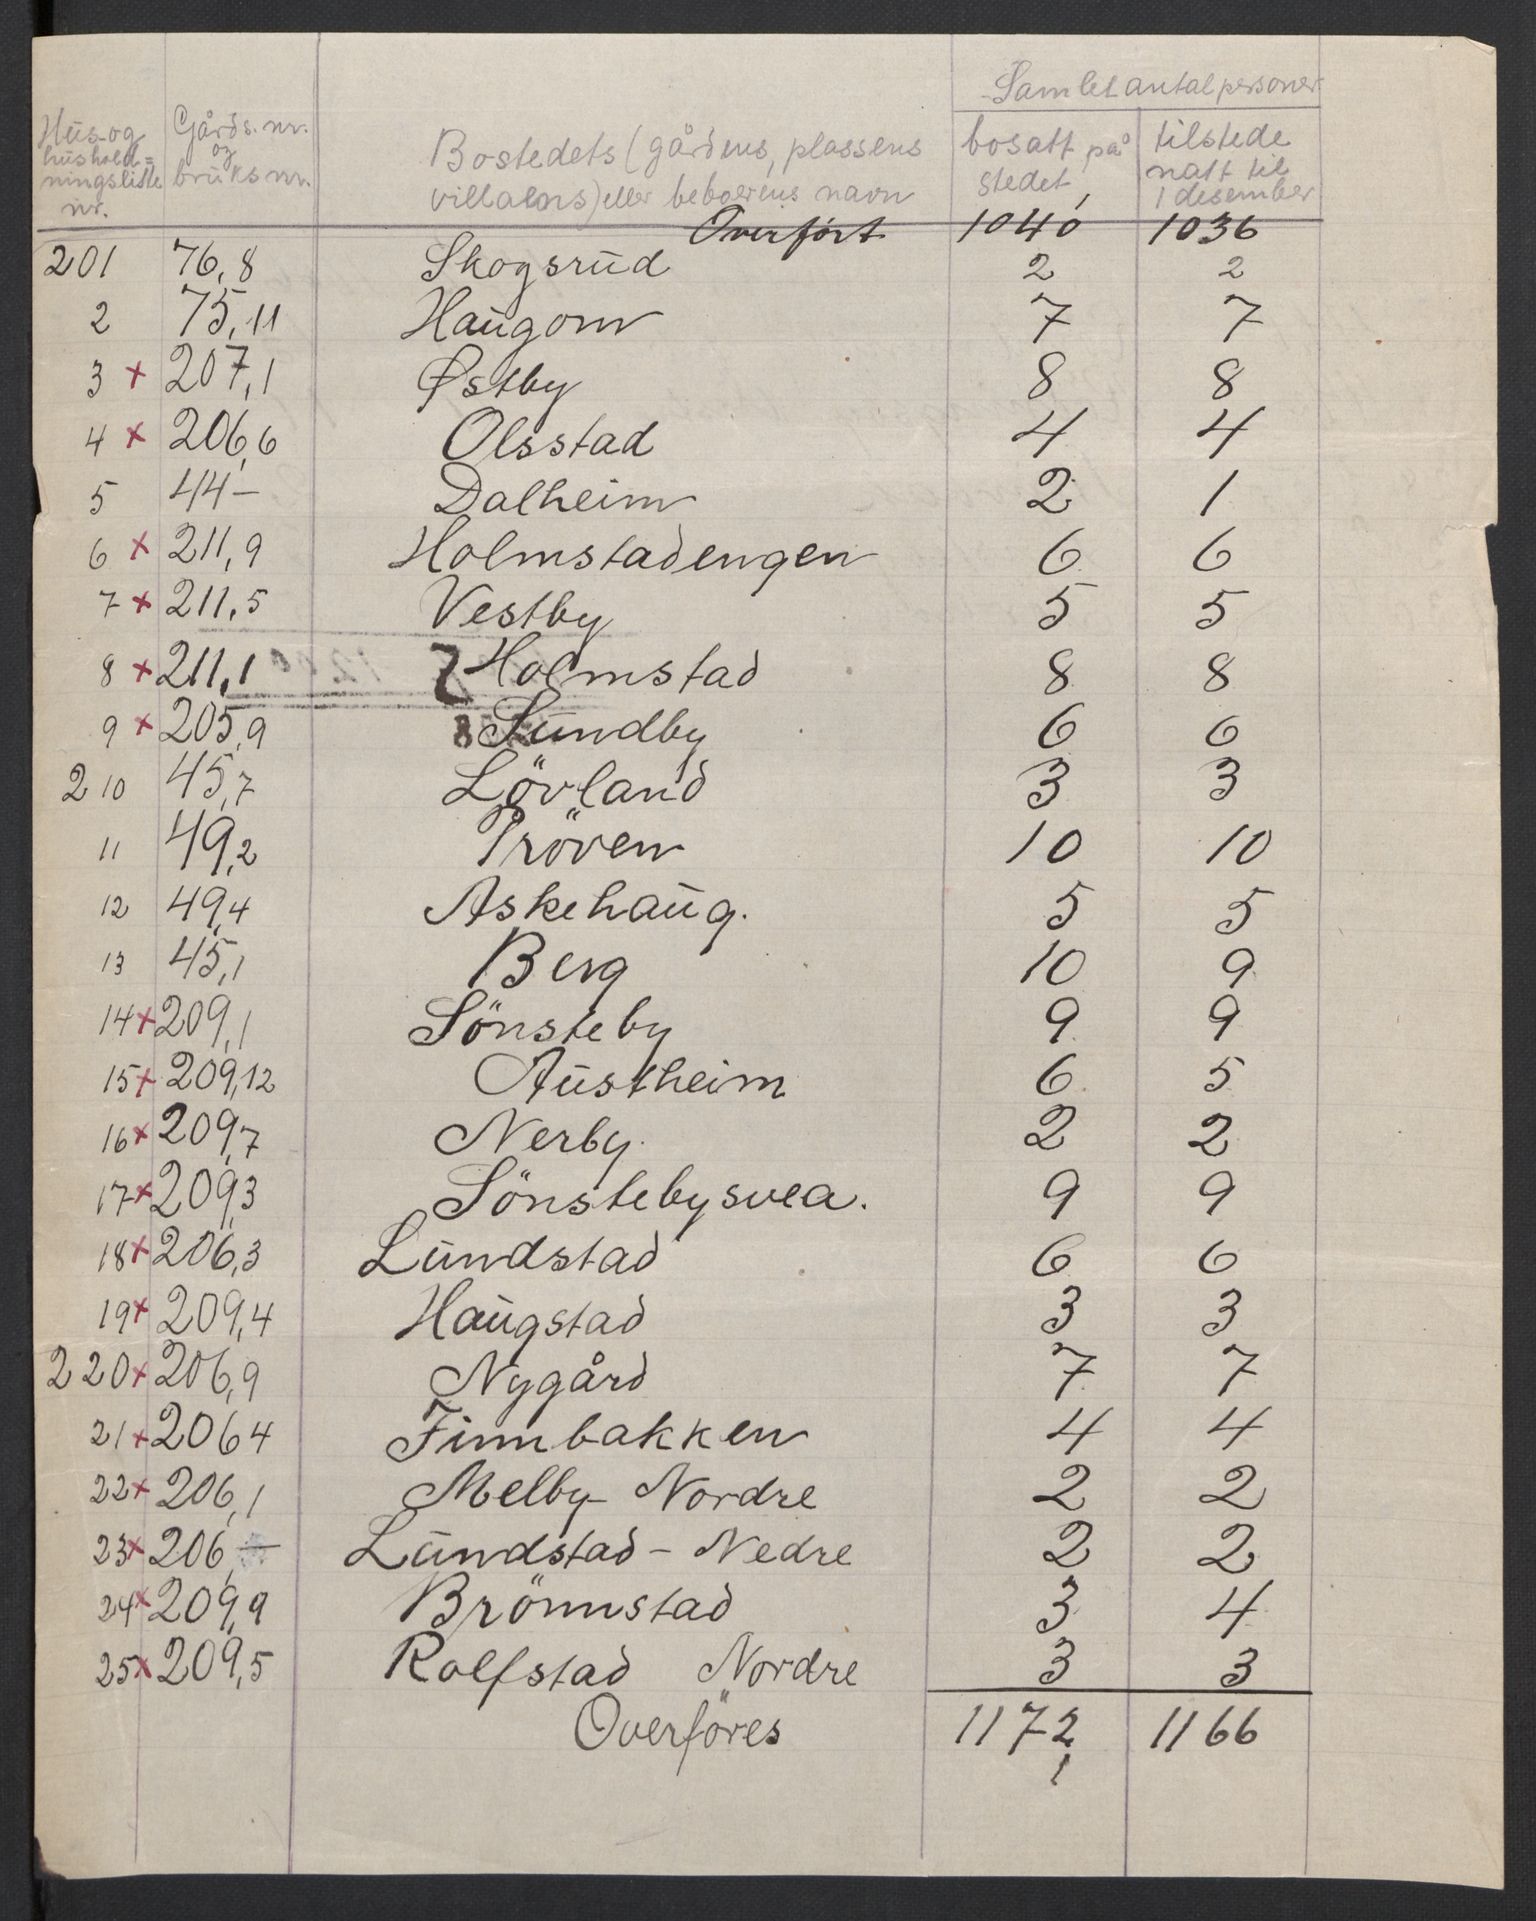 Samlet antal personer
Hus- og husholdningsliste nr. | Gårds. nr. og bruks nr. | Bostedets (gårdens, plassens villaens) eller beboerens navn | bosatt på stedet | tilstede natt til 1 desember
Overført 1040 1036
201 76,8 Skogsrud 2 2
2 75,11 Haugom 7 7
3 x 207,1 Østby 8 8
4 x 206,6 Olsstad 4 4
5 44 – Dalheim 2 1
6 x 211,9 Holmstadengen 6 6
7 x 211,5 Vestby 5 5
8 x 211,1 Holmstad 8 8
9 x 205,9 Sundby 6 6
210 45,7 Lövland 3 3
11 49,2 Pröven 10 10
12 49,4 Askehaug. 5 5
13 45,1 Berg 10 9
14 x 209,1 Sönsteby 9 9
15 x 209,12 Austheim 6 5
16 x 209,7 Nerby. 2 2
17 x 209,3 Sönstebysvea. 9 9
18 x 206,3 Lundstad 6 6
19 x 209,4 Haugstad 3 3
220 x 206,9 Nygård 7 7
21 x 206 4 Finnbakken 4 4
22 x 206,1 Melby Nordre 2 2
23 x 206, – Lundstad – Nedre 2 2
24 x 209,9 Brönnstad 3 4
25 x 209,5 Rolfstad Nordre 3 3
Overföres 1172 1166